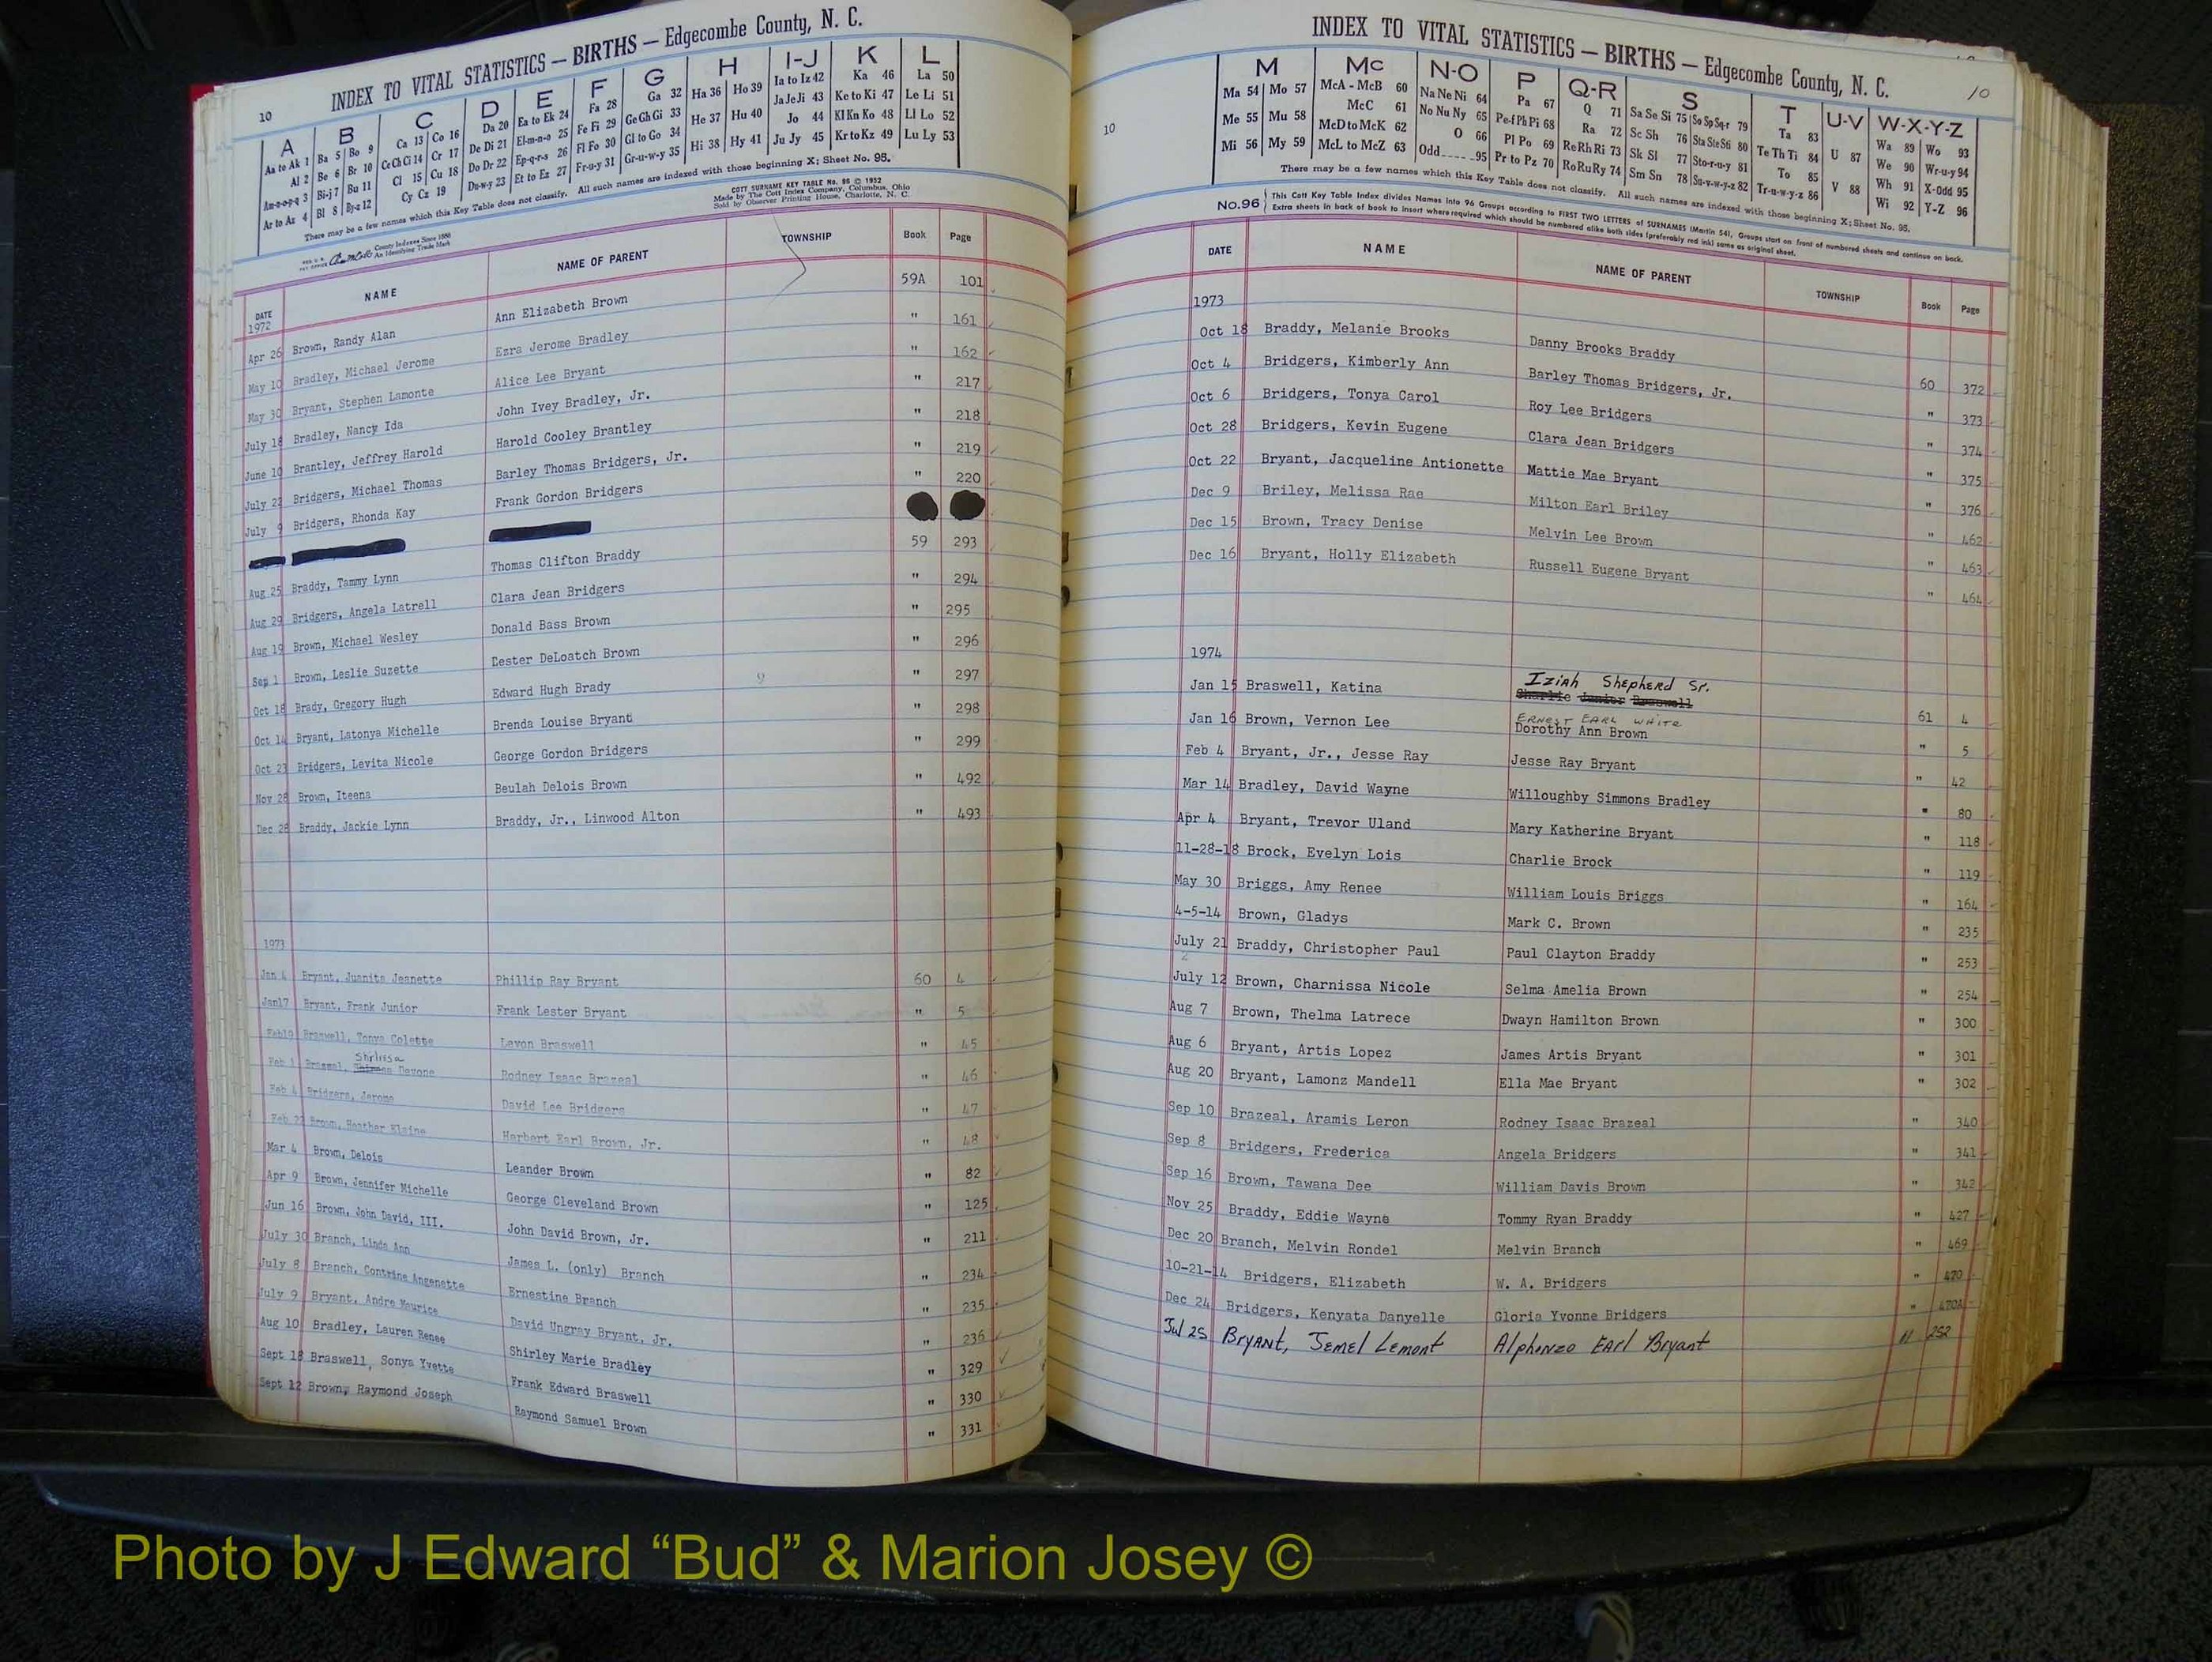 10
INDEX TO VITAL STATISTICS — BIRTHS — Edgecombe County, N. C.
A B C D E F G H I-J K L
Aa to Ak 1 Ba 5 Bo 9 Ca 13 Co 16 Da 20 Ea to Ek 24 Fa 28 Ga 32 Ha 36 Ho 39 Ia to Iz 42 Ka 46 La 50
Al 2 Be 6 Br 10 Ce Ch Ci 14 Cr 17 De Di 21 El-m-n-o 25 Fe Fi 29 Ge Gh Gi 33 He 37 Hu 40 Ja Je Ji 43 Ke to Ki 47 Le Li 51
Am-n-o-p-q 3 Bi-j 7 Bu 11 Cl 15 Cu 18 Do Dr 22 Ep-q-r-s 26 Fl Fo 30 Gl to Go 34 Hi 38 Hy 41 Jo 44 Kl Kn Ko 48 Ll Lo 52
Ar to Az 4 Bl 8 By-z 12 Cy Cz 19 Du-w-y 23 Et to Ez 27 Fr-u-y 31 Gr-u-w-y 35 Ju Jy 45 Kr to Kz 49 Lu Ly 53
There may be a few names which this Key Table does not classify. All such names are indexed with those beginning X; Sheet No. 95.
County Indexes Since 1888
An Identifying Trade Mark
COTT SURNAME KEY TABLE No. 96 © 1952
Made by The Cott Index Company, Columbus, Ohio
Sold by Observer Printing House, Charlotte, N. C.
DATE NAME NAME OF PARENT TOWNSHIP Book Page
1972
Apr 26 Brown, Randy Alan Ann Elizabeth Brown 59A 101
May 10 Bradley, Michael Jerome Ezra Jerome Bradley " 161
May 30 Bryant, Stephen Lamonte Alice Lee Bryant " 162
July 18 Bradley, Nancy Ida John Ivey Bradley, Jr. " 217
June 10 Brantley, Jeffrey Harold Harold Cooley Brantley " 218
July 22 Bridgers, Michael Thomas Barley Thomas Bridgers, Jr. " 219
July 9 Bridgers, Rhonda Kay Frank Gordon Bridgers " 220
Aug 25 Braddy, Tammy Lynn Thomas Clifton Braddy 59 293
Aug 29 Bridgers, Angela Latrell Clara Jean Bridgers " 294
Aug 19 Brown, Michael Wesley Donald Bass Brown " 295
Sep 1 Brown, Leslie Suzette Lester DeLoatch Brown " 296
Oct 18 Brady, Gregory Hugh Edward Hugh Brady " 297
Oct 14 Bryant, Latonya Michelle Brenda Louise Bryant " 298
Oct 23 Bridgers, Levita Nicole George Gordon Bridgers " 299
Nov 28 Brown, Iteena Beulah Delois Brown " 492
Dec 28 Braddy, Jackie Lynn Braddy, Jr., Linwood Alton " 493
1973
Jan 4 Bryant, Juanita Jeanette Phillip Ray Bryant 60 4
Jan17 Bryant, Frank Junior Frank Lester Bryant " 5
Feb19 Braswell, Tonya Colette Lavon Braswell " 45
Shrlissa
Feb 1 Brazeal, Devone Rodney Isaac Brazeal " 46
Feb 4 Bridgers, Jerome David Lee Bridgers " 47
Feb 22 Brown, Heather Elaine Harbert Earl Brown, Jr. " 48
Mar 4 Brown, Delois Leander Brown " 82
Apr 9 Brown, Jennifer Michelle George Cleveland Brown " 125
Jun 16 Brown, John David, III. John David Brown, Jr. " 211
July 30 Branch, Linda Ann James L. (only) Branch " 234
July 8 Branch, Contrina Angenette Ernestine Branch " 235
July 9 Bryant, Andre Maurice David Ungray Bryant, Jr. " 236
Aug 10 Bradley, Lauren Renee Shirley Marie Bradley " 329
Sept 18 Braswell, Sonya Yvette Frank Edward Braswell " 330
Sept 12 Brown, Raymond Joseph Raymond Samuel Brown " 331
INDEX TO VITAL STATISTICS — BIRTHS — Edgecombe County, N. C.
10
10
M Mc N-O P Q-R S T U-V W-X-Y-Z
Ma 54 Mo 57 McA - McB 60 Na Ne Ni 64 Pa 67 Q 71 Sa Se Si 75 So Sp Sq-r 79 Ta 83 Wa 89 Wo 93
Me 55 Mu 58 McC 61 No Nu Ny 65 Pe-f Ph Pi 68 Ra 72 Sc Sh 76 Sta Ste Sti 80 Te Th Ti 84 U 87 We 90 Wr-u-y 94
Mi 56 My 59 McD to McK 62 O 66 Pl Po 69 Re Rh Ri 73 Sk Sl 77 Sto-r-u-y 81 To 85 V 88 Wh 91 X-Odd 95
McL to McZ 63 Odd 95 Pr to Pz 70 Ro Ru Ry 74 Sm Sn 78 Su-v-w-y-z 82 Tr-u-w-y-z 86 Wi 92 Y-Z 96
There may be a few names which this Key Table does not classify. All such names are indexed with those beginning X; Sheet No. 95.
No.96 This Cott Key Table Index divides Names into 96 Groups according to FIRST TWO LETTERS of SURNAMES (Martin 54). Groups start on front of numbered sheets and continue on back.
Extra sheets in back of book to insert where required which should be numbered alike both sides (preferably red ink) same as original sheet.
DATE NAME NAME OF PARENT TOWNSHIP Book Page
1973
Oct 18 Braddy, Melanie Brooks Danny Brooks Braddy 60 372
Oct 4 Bridgers, Kimberly Ann Barley Thomas Bridgers, Jr. " 373
Oct 6 Bridgers, Tonya Carol Roy Lee Bridgers " 374
Oct 28 Bridgers, Kevin Eugene Clara Jean Bridgers " 375
Oct 22 Bryant, Jacqueline Antionette Mattie Mae Bryant " 376
Dec 9 Briley, Melissa Rae Milton Earl Briley " 462
Dec 15 Brown, Tracy Denise Melvin Lee Brown " 463
Dec 16 Bryant, Holly Elizabeth Russell Eugene Bryant " 464
1974
Iziah Shepherd Sr.
Jan 15 Braswell, Katina Charlie Junior Braswell 61 4
Ernest Earl White
Jan 16 Brown, Vernon Lee Dorothy Ann Brown " 5
Feb 4 Bryant, Jr., Jesse Ray Jesse Ray Bryant " 42
Mar 14 Bradley, David Wayne Willoughby Simmons Bradley " 80
Apr 4 Bryant, Trevor Uland Mary Katherine Bryant " 118
11-28-18 Brock, Evelyn Lois Charlie Brock " 119
May 30 Briggs, Amy Renee William Louis Briggs " 164
4-5-14 Brown, Gladys Mark C. Brown " 235
July 21 Braddy, Christopher Paul Paul Clayton Braddy " 253
July 12 Brown, Charnissa Nicole Selma Amelia Brown " 254
Aug 7 Brown, Thelma Latrece Dwayn Hamilton Brown " 300
Aug 6 Bryant, Artis Lopez James Artis Bryant " 301
Aug 20 Bryant, Lamonz Mandell Ella Mae Bryant " 302
Sep 10 Brazeal, Aramis Leron Rodney Isaac Brazeal " 340
Sep 8 Bridgers, Frederica Angela Bridgers " 341
Sep 16 Brown, Tawana Dee William Davis Brown " 342
Nov 25 Braddy, Eddie Wayne Tommy Ryan Braddy " 427
Dec 20 Branch, Melvin Rondel Melvin Branch " 469
10-21-14 Bridgers, Elizabeth W. A. Bridgers " 470
Dec 24 Bridgers, Kenyata Danyelle Gloria Yvonne Bridgers " 470A
Jul 25 Bryant, Jemel Lemont Alphonzo Earl Bryant " 252
Photo by J Edward “Bud” & Marion Josey ©